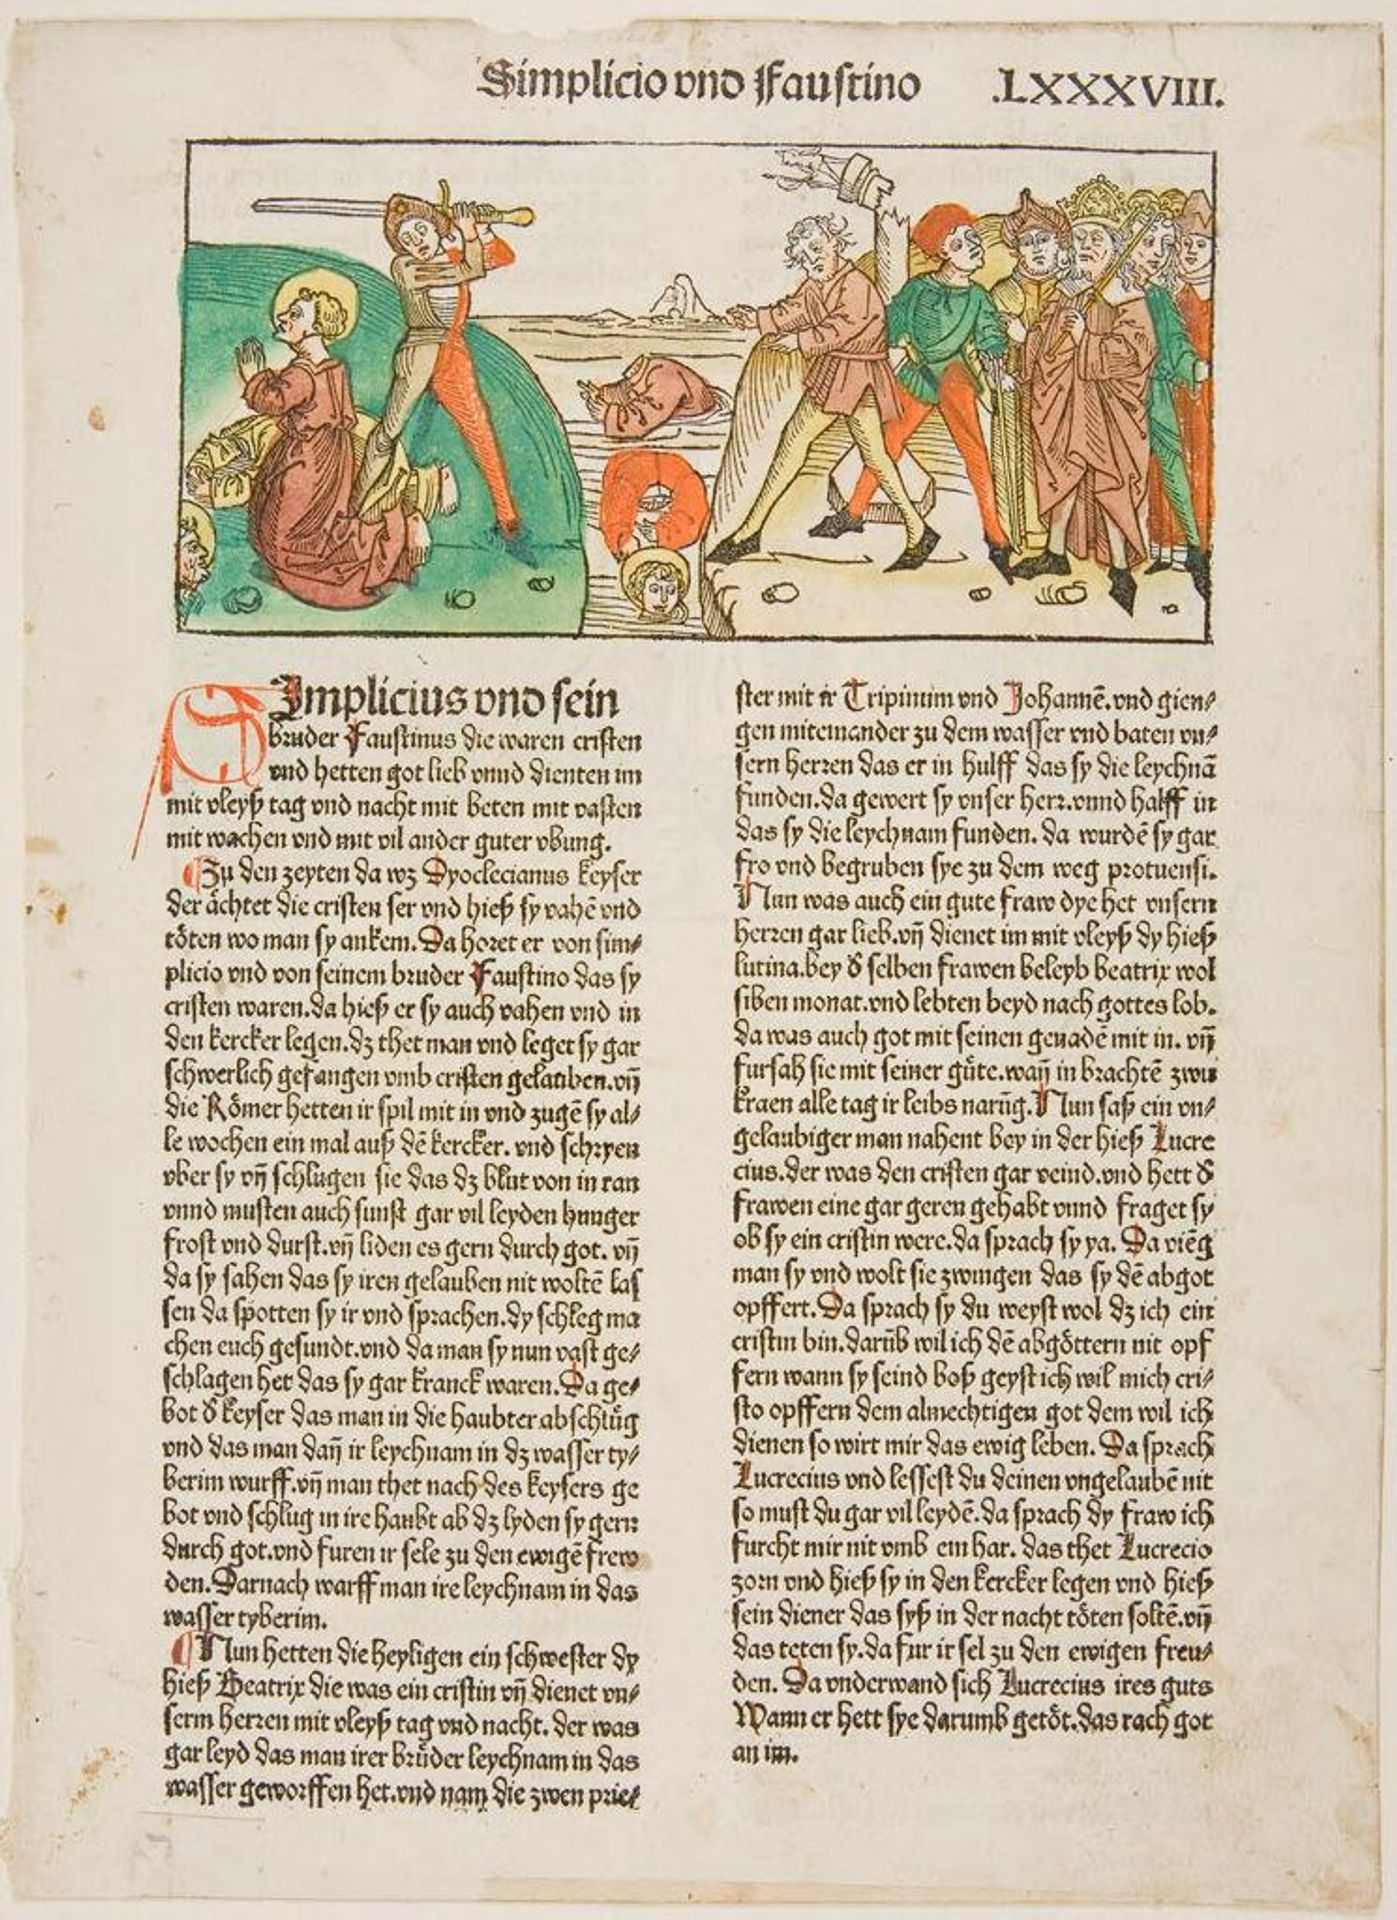 Simplicio vnd Faustino .LXXXVIII.
SImplicius vnd sein
bruder Faustinus die waren cristen
vnd hetten got lieb vnnd dienten im
mit vleyß tag vnd nacht mit beten mit vasten
mit wachen vnd mit vil ander guter vbung.
¶Zu den zeyten da wz Dyoclecianus keyser
der ächtet die cristen ser vnd hieß sy vahē vnd
töten wo man sy ankem. Da horet er von sim⸗
plicio vnd von seinem bruder Faustino das sy
cristen waren. da hieß er sy auch vahen vnd in
den kercker legen. dz thet man vnd leget sy gar
schwerlich gefangen vmb cristen gelauben. vn̄
die Römer hetten ir spil mit in vnd zugē sy al⸗
le wochen ein mal auß dē kercker. vnd schryen
vber sy vn̄ schlugen sie das dz blut von in ran
vnnd musten auch sunst gar vil leyden hunger
frost vnd durst. vn̄ liden es gern durch got. vn̄
da sy sahen das sy iren gelauben nit woltē las
sen da spotten sy ir vnd sprachen. dy schleg ma
chen euch gesundt. vnd da man sy nun vast ge⸗
schlagen het das sy gar kranck waren. Da ge⸗
bot d̄ keyser das man in die haubter abschlüg
vnd das man dan̄ ir leychnam in dz wasser ty⸗
berim wurff. vn̄ man thet nach des keysers ge
bot vnd schlug in ire haubt ab dz lyden sy gern
durch got. vnd furen ir sele zu den ewigē frew
den. Darnach warff man ire leychnam in das
wasser tyberim.
¶Nun hetten die heyligen ein schwester dy
hieß Beatrix die was ein cristin vn̄ dienet vn⸗
serm herren mit vleyß tag vnd nacht. der was
gar leyd das man irer brüder leychnam in das
wasser geworffen het. vnd nam die zwen prie⸗
ster mit ir Tripinum vnd Johannē. vnd gien⸗
gen miteinander zu dem wasser vnd baten vn⸗
sern herren das er in hulff das sy die leychnā
funden. da gewert sy vnser herr. vnnd halff in
das sy die leychnam funden. da wurdē sy gar
fro vnd begruben sye zu dem weg protuensi.
Nun was auch ein gute fraw dye het vnsern
herren gar lieb. vn̄ dienet im mit vleyß dy hieß
lucina. bey d̄ selben frawen beleyb beatrix wol
siben monat. vnd lebten beyd nach gottes lob.
da was auch got mit seinen genadē mit in. vn̄
fursah sie mit seiner güte. wan̄ in brachtē zwu
kraen alle tag ir leibs narūg. Nun saß ein vn⸗
gelaubiger man nahent bey in der hieß Lucre
cius. der was den cristen gar veind. vnd hett d̄
frawen eine gar geren gehabt vnnd fraget sy
ob sy ein cristin were. da sprach sy ya. Da viēg
man sy vnd wolt sie zwingen das sy dē abgot
opffert. Da sprach sy du weyst wol dz ich ein
cristin bin. darūb wil ich dē abgöttern nit opf
fern wann sy seind boß geyst ich wil mich cri⸗
sto opffern dem almechtigen got dem wil ich
dienen so wirt mir das ewig leben. Da sprach
Lucrecius vnd lessest du deinen vngelaubē nit
so must du gar vil leydē. da sprach dy fraw ich
furcht mir nit vmb ein har. das thet Lucrecio
zorn vnd hieß sy in den kercker legen vnd hieß
sein diener das syß in der nacht töten soltē. vn̄
das teten sy. da fur ir sel zu den ewigen freu⸗
den. Da vnderwand sich Lucrecius ires guts
Wann er hett sye darumb getöt. das rach got
an im.